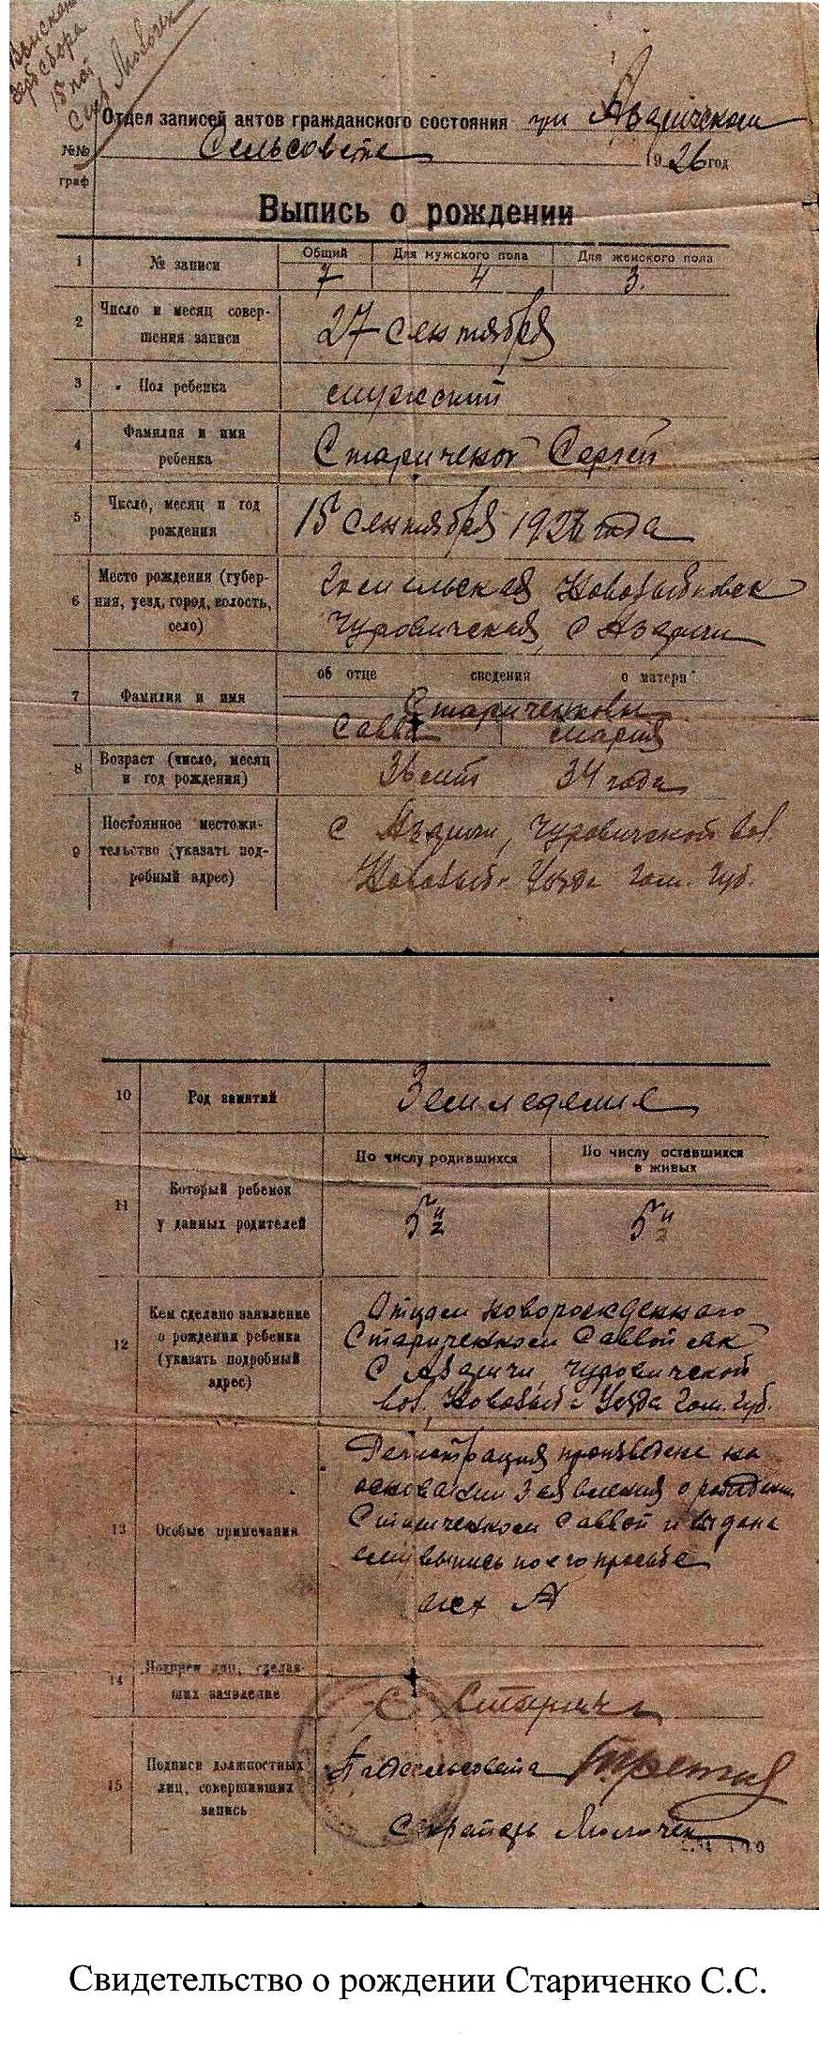 Взыскан
гербсбора
15 коп
Отдел записей актов гражданского состояния при Аздричском
Сельсовете 1926 год
№№ граф
Выпись о рождении
1 № записи Общий Для мужского пола Для женского пола
7 4 3.
2 Число и месяц совер-
шения записи 27 сентября
3 Пол ребенка мужский
4 Фамилия и имя
ребенка Стариченок Сергей
5 Число, месяц и год
рождения 15 сентября 1926 года
6 Место рождения (губер-
ния, уезд, город, волость,
село)
Гомельская Новозыбковск
Чуровичская, с Аздричи
7 Фамилия и имя об отце сведения о матери
Стариченковы
Савва Мария
8 Возраст (число, месяц
и год рождения) 36 лет 34 года
9 Постоянное местожи-
тельство (указать под-
робный адрес)
с Аздричи, Чуровичской вол.
Новозыб. Уезда Гом. Губ.
10 Род занятий Земледелие
11 Который ребенок
у данных родителей По числу родившихся По числу оставшихся
в живых
5й 5й
12 Кем сделано заявление
о рождении ребенка
(указать подробный
адрес)
Отцом новорожденного
Стариченком Саввой
с Аздричи, Чуровичской
вол. Новозыб. Уезда Гом. Губ.
13 Особые примечания
Регистрация произведена на
основании заявления о рождении
Стариченком Саввой и выдана
ему выпись по его просьбе
14 Подписи лиц, сделав-
ших заявление С Старич
15 Подписи должностных
лиц, совершивших
запись
сельсовета
Секретарь Молочек
Свидетельство о рождении Стариченко С.С.